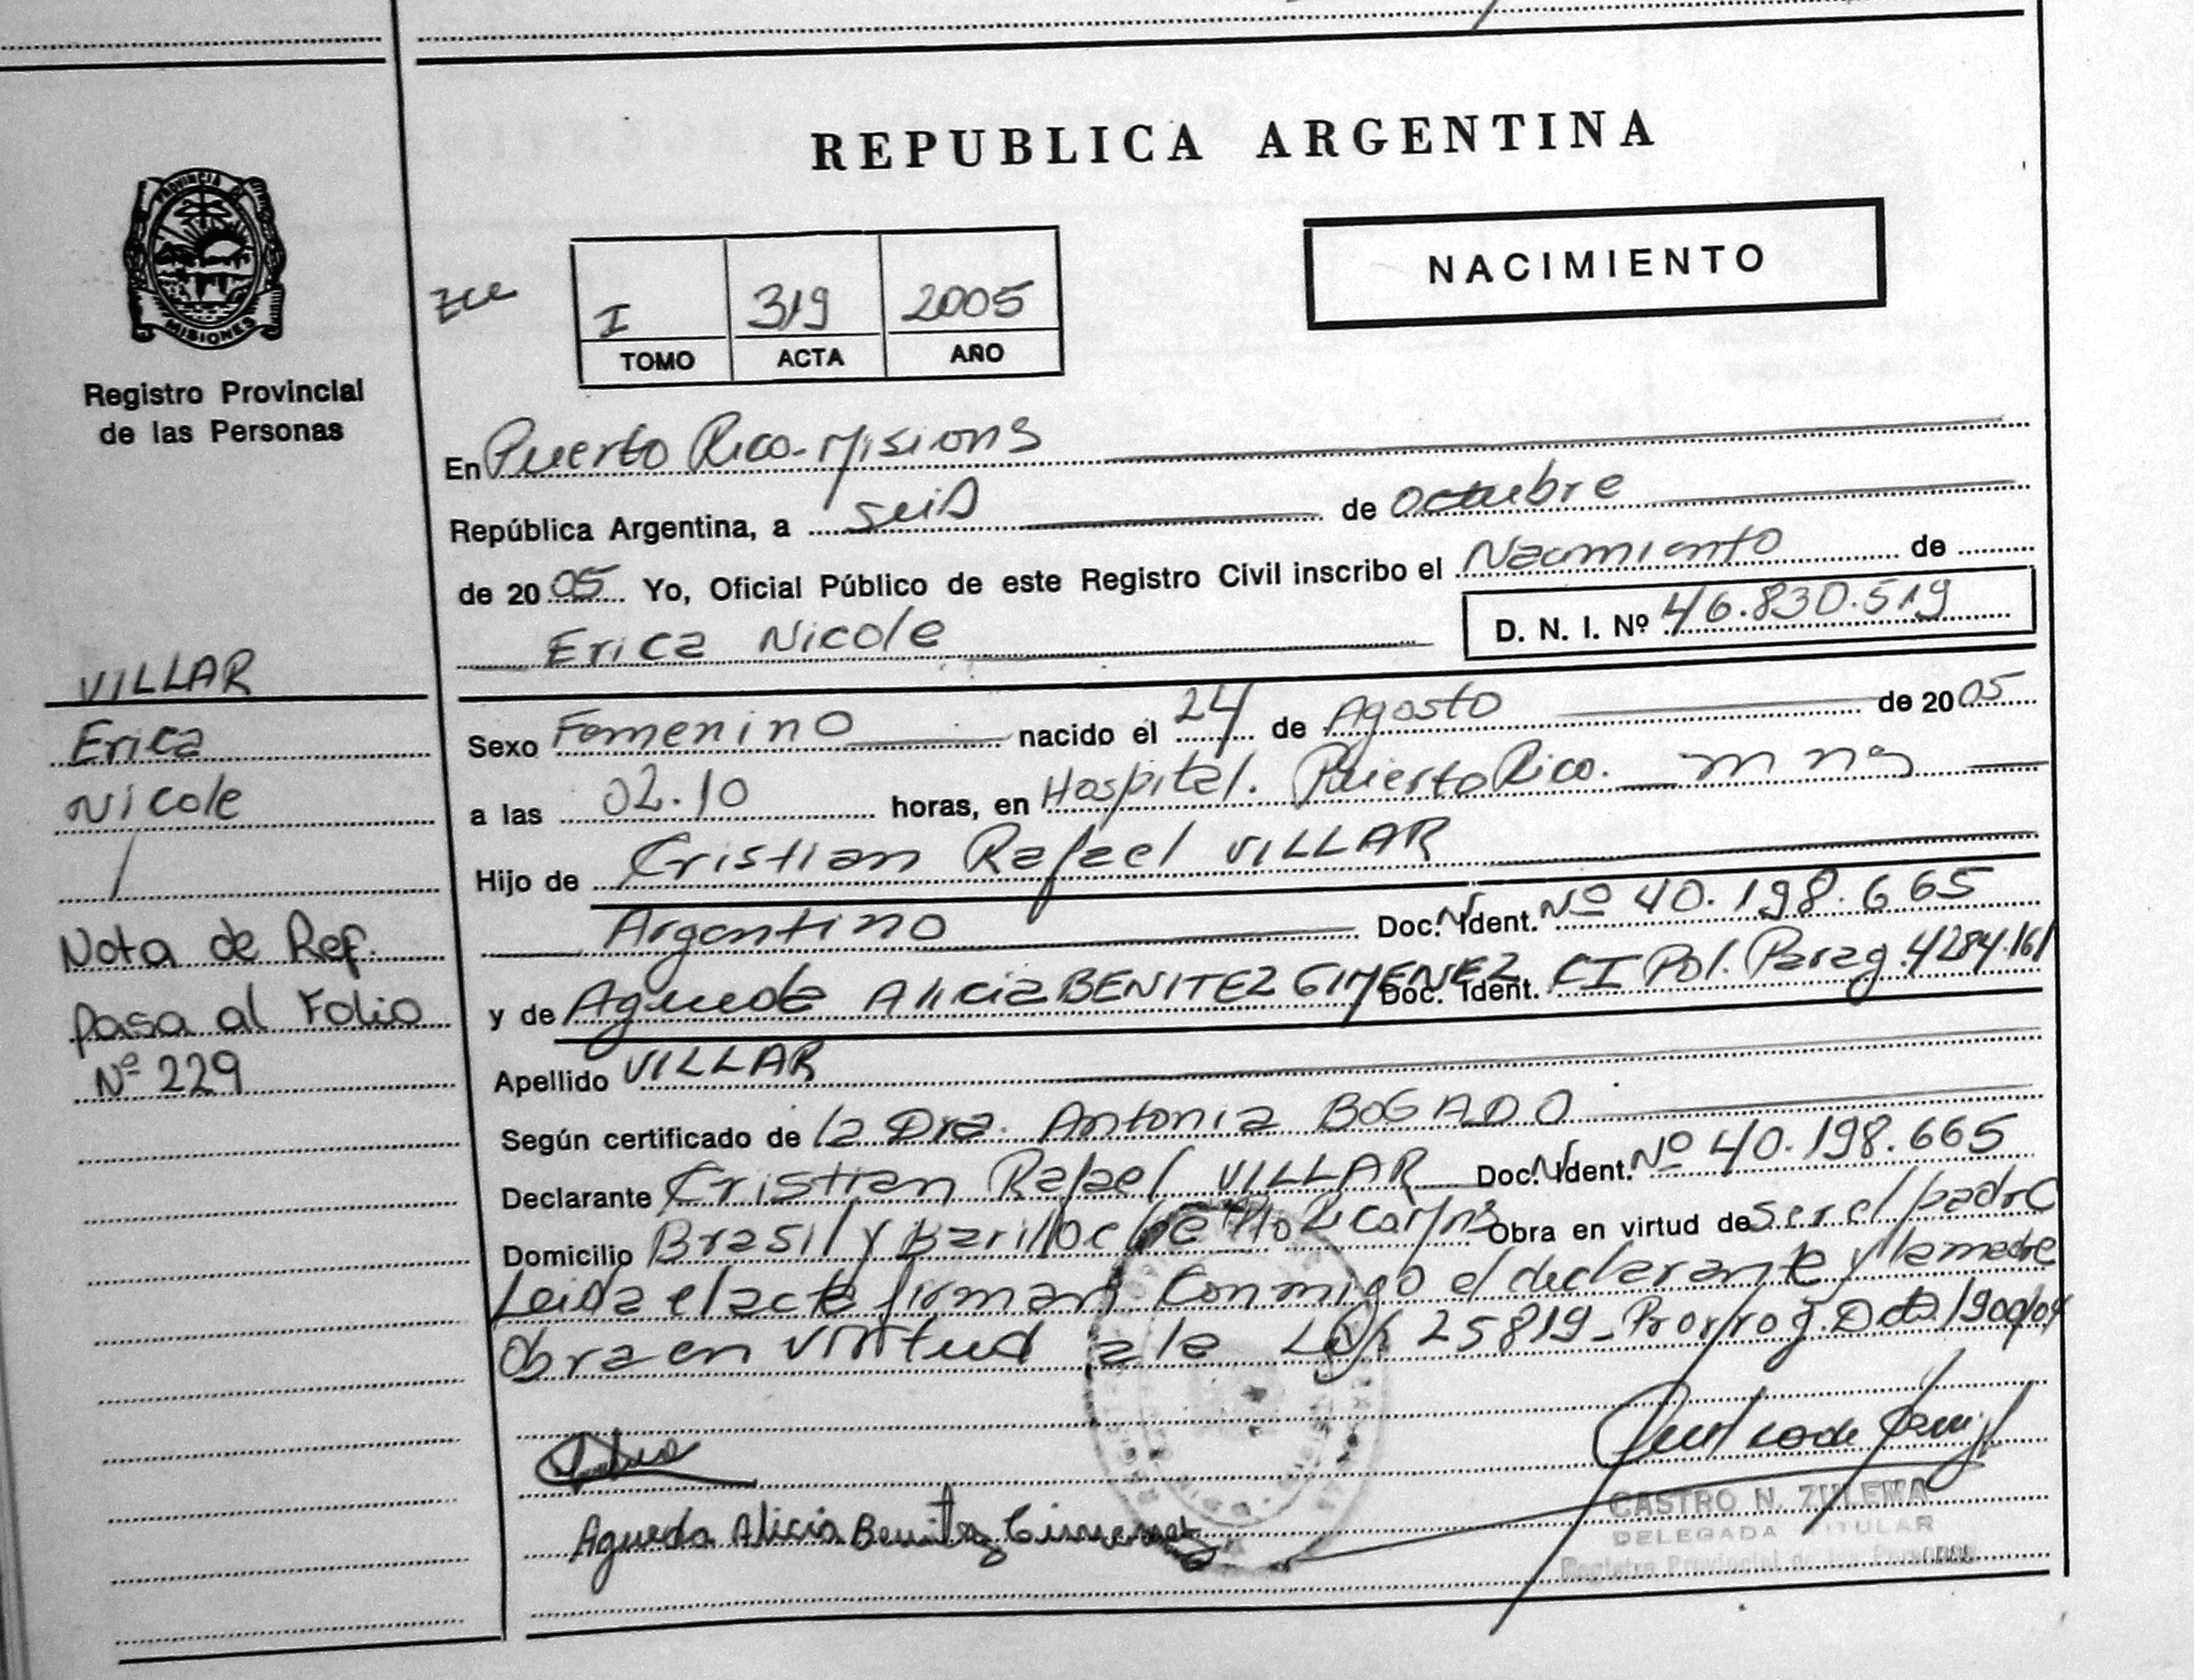 REPUBLICA ARGENTINA
PROVINCIA DE
MISIONES
Registro Provincial
de las Personas
NACIMIENTO
I 319 2005
TOMO ACTA AÑO
En Puerto Rico-Misions
República Argentina, a seis de octubre
de 2005 Yo, Oficial Público de este Registro Civil inscribo el Nacimiento de
Erica Nicole D. N. I. Nº 46.830.519
VILLAR
Erica
Nicole
Nota de Ref.
pasa al Folio
Nº 229
Sexo Femenino nacido el 24 de Agosto de 2005
a las 02.10 horas, en Hospital. Puerto Rico. mns
Hijo de Cristian Rafael VILLAR
Argentino Doc. N. Ident. Nº 40.198.665
y de Agueda Alicia BENITEZ GIMENEZ Doc. Ident. CI Pol. Parag. 4284.161
Apellido VILLAR
Según certificado de la Dra. Antonia BOGADO
Declarante Cristian Rafael VILLAR Doc. N. Ident. Nº 40.198.665
Domicilio Brasil y Bariloche Pto Rico Mns Obra en virtud de ser el padre
Leida el acta firman conmigo el declarante y la madre
Obra en virtud a la Ley 25819-Prorrog. Dcto 1900/04
Agueda Alicia Benitez Gimenez
CASTRO N. ZULEMA
DELEGADA TITULAR
Registro Provincial de las Personas